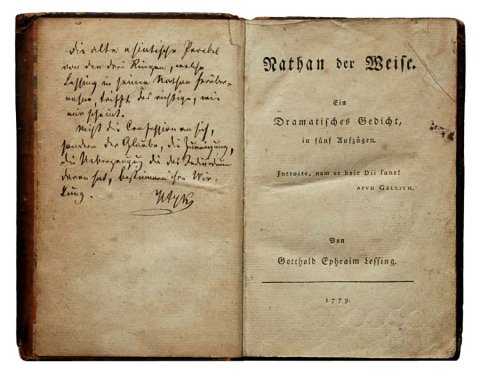 Die alte asiatische Parabel
von den drei Ringen, welche
Lessing in seinen Nathan herüber-
nahm, trifft das richtige, wie
mir scheint.
Nicht die Confession an sich,
sondern der Glaube, die Zuneigung,
die Ueberzeugung, die das Individuum
daran hat, bestimmen ihre Wir-
kung.
Nathan der Weise.
Ein
Dramatisches Gedicht,
in fünf Aufzügen.
Introite, nam et heic Dii sunt!
APVD GELLIVM.
Von
Gotthold Ephraim Lessing.
1779.